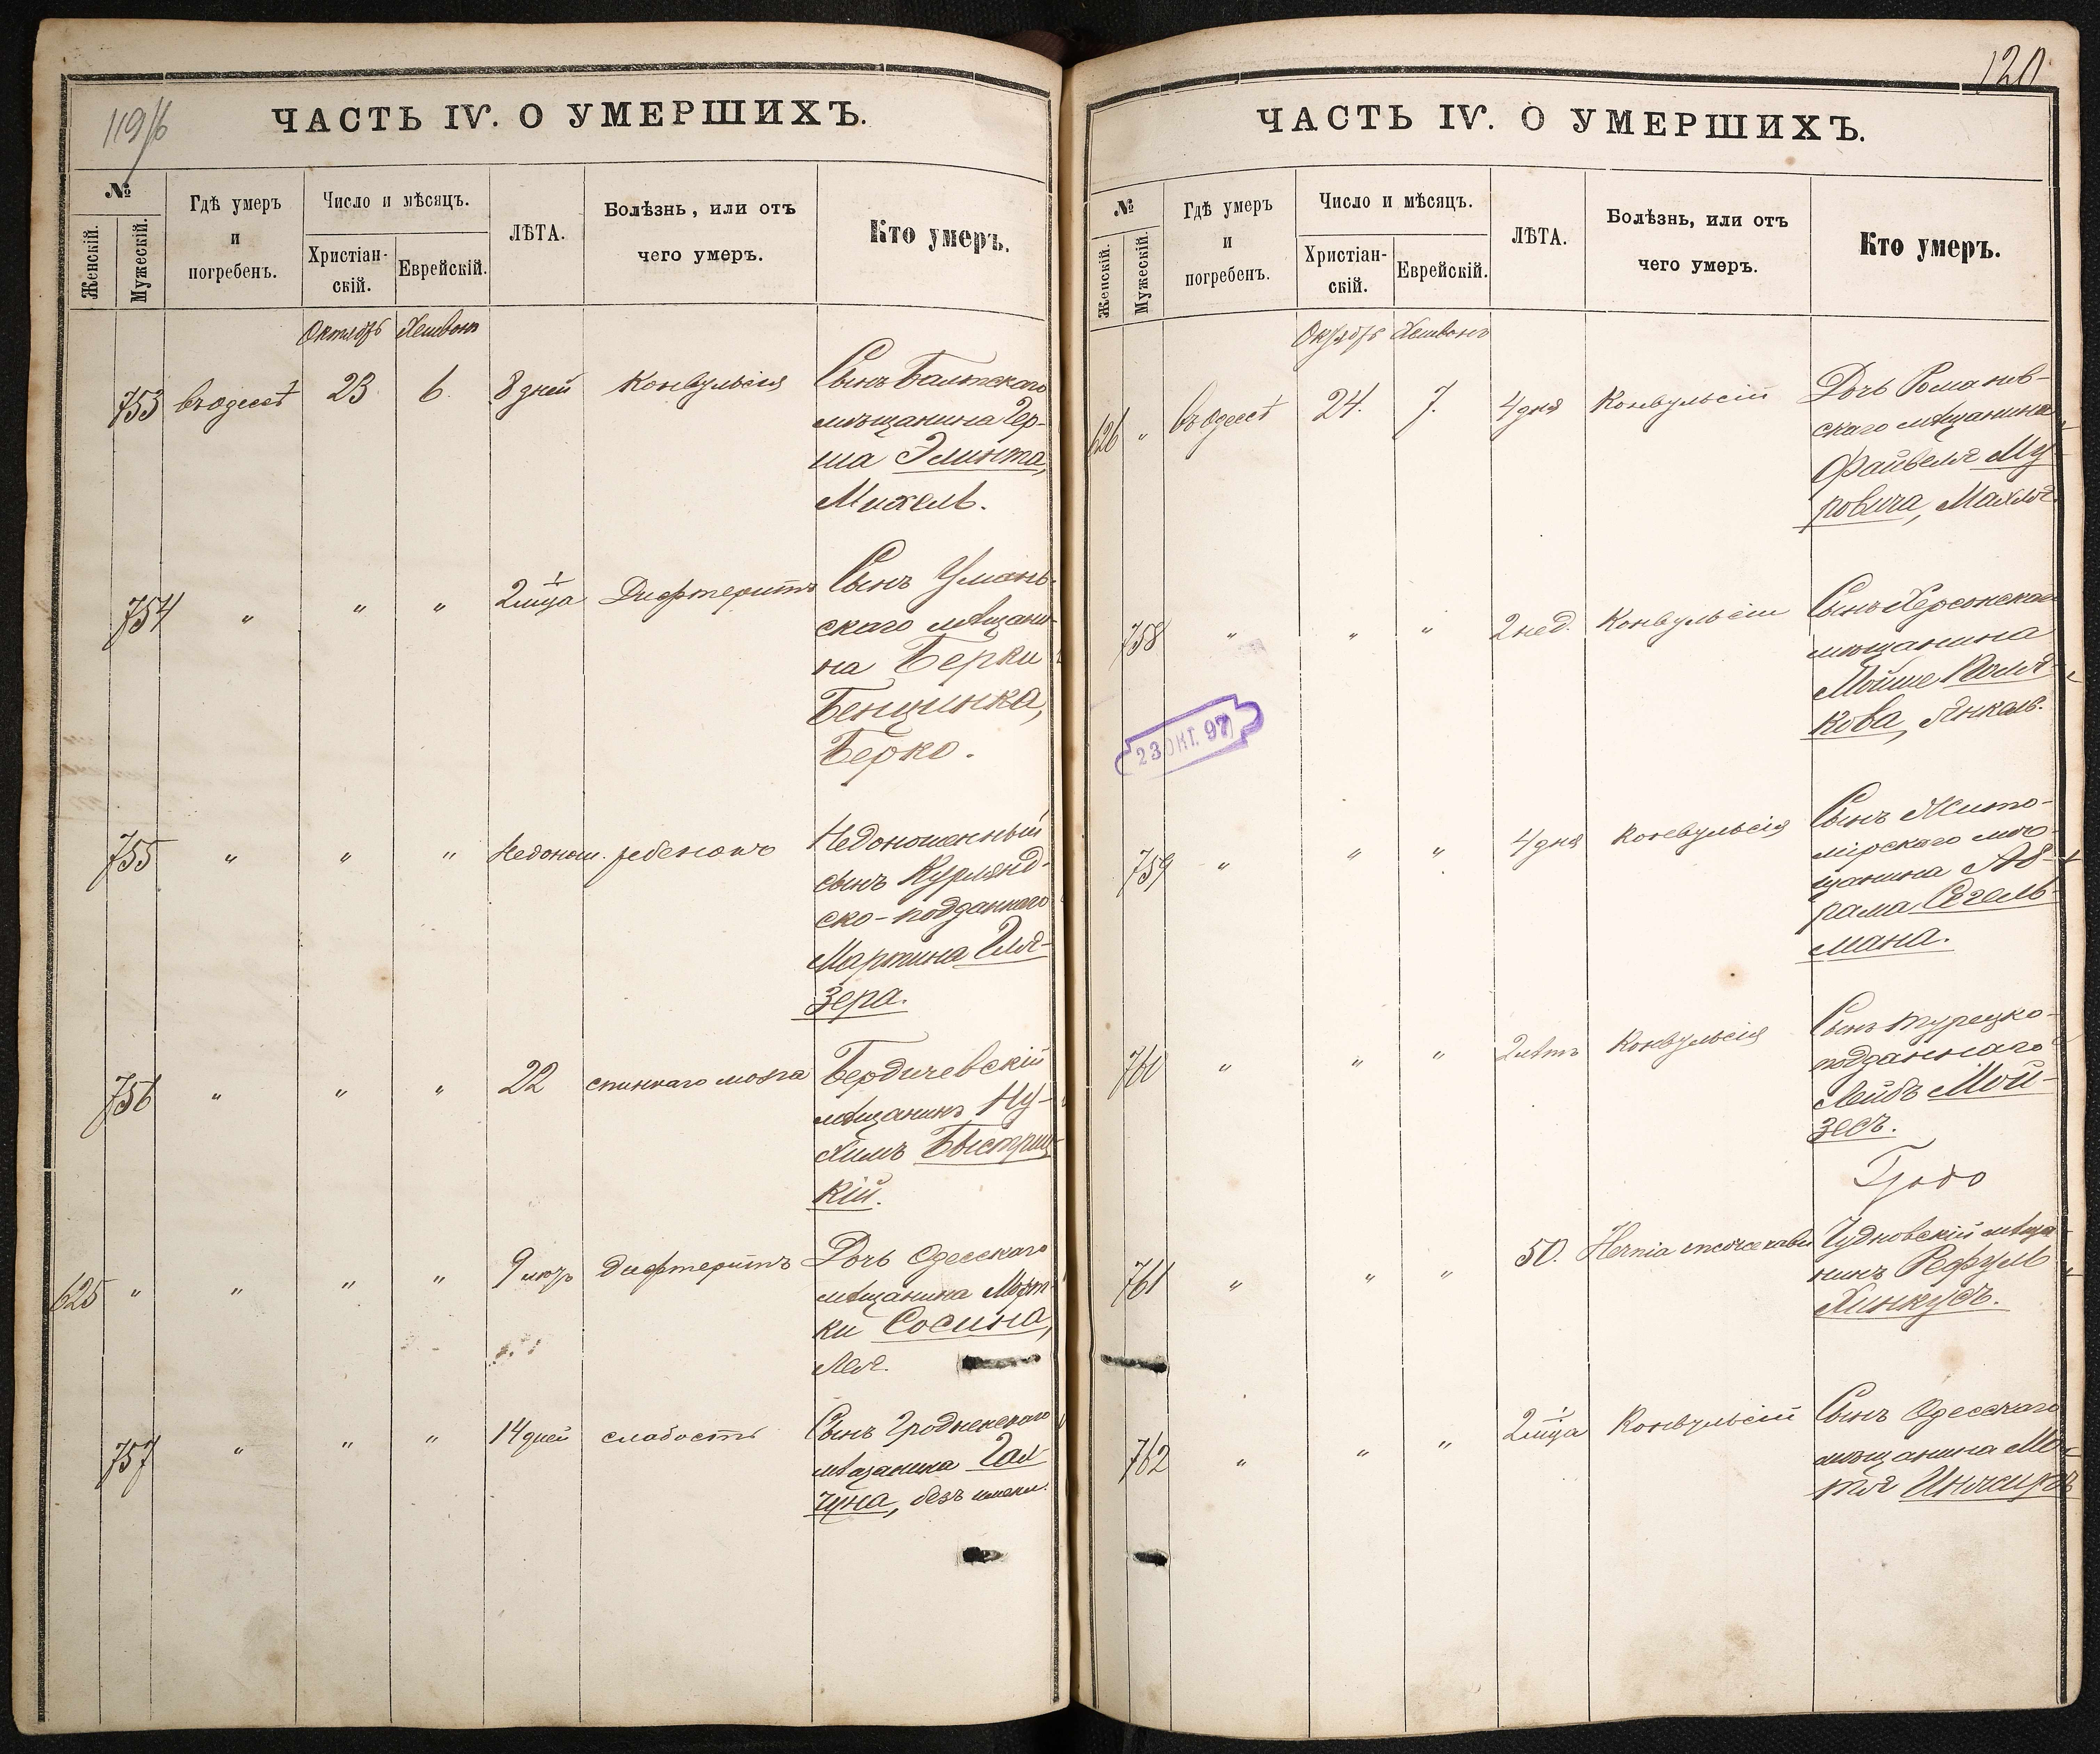 119/б
ЧАСТЬ IV. О УМЕРШИХЪ.
№
Женскій.
Мужескій.
Гдѣ умеръ
и
погребенъ.
Число и мѣсяцъ.
Христіан-
скій.
Еврейскій.
ЛѢТА.
Болѣзнь, или отъ
чего умеръ.
Кто умеръ.
Октябрь Хешвонъ
753 въ Одессѣ 23 6. 8 дней Конвульсія Сынъ Балтскаго
мѣщанина Гер-
ша Элинта,
Михель.
754 " " " 2 1 мца Дифтеритъ Сынъ Умань-
скаго мѣщани-
на Берки
Бенщинка,
Берко.
755 " " " Недонош. ребенокъ Недоношенный
сынъ Курлянд-
ско-подданнаго
Мартина Гля-
зера.
756 " " " 22 спиннаго мозга Бердичевскій
мѣщанинъ Ну-
химъ Быстриц-
кій.
625 " " " " 9 мцъ Дифтеритъ Дочь Одесскаго
мѣщанина Морт-
ки Сосина,
Лея.
757 " " " 14 дней слабость Сынъ Гродненскаго
мѣщанина Гал
чуна, безъ имени.
120
ЧАСТЬ IV. О УМЕРШИХЪ.
№
Женскій.
Мужескій.
Гдѣ умеръ
и
погребенъ.
Число и мѣсяцъ.
Христіан-
скій.
Еврейскій.
ЛѢТА.
Болѣзнь, или отъ
чего умеръ.
Кто умеръ.
Октябрь Хешвонъ
626 " въ Одессѣ 24. 7. 4 дня Конвульсіи Дочь Романов-
скаго мѣщанина
Файвеля Му-
ровича, Махля
758 " " " 2 нед. Конвульсіи Сынъ Херсонскаго
мѣщанина
Мойше Поля-
кова, Янкель.
23 ОКТ. 97
759 " " " 4 дня Конвульсія Сынъ Жито-
мірскаго мѣ-
щанина Аб-
рама Сегель-
мана.
760 " " " 2 лѣтъ Конвульсія Сынъ турецко-
подданнаго
Лейбъ Мой-
зесъ.
761 " " " 50. Hernia Чудновскій мѣща
нинъ Рефуль
Хинкусъ.
762 " " " 2 1 мца Конвульсіи Сынъ Одесскаго
мѣщанина Мо-
тя